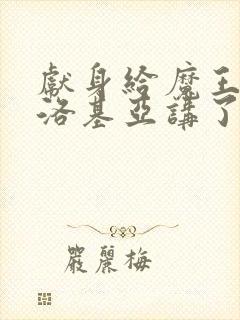 獻身給魔王伊
洛基亞講了
嚴麗梅